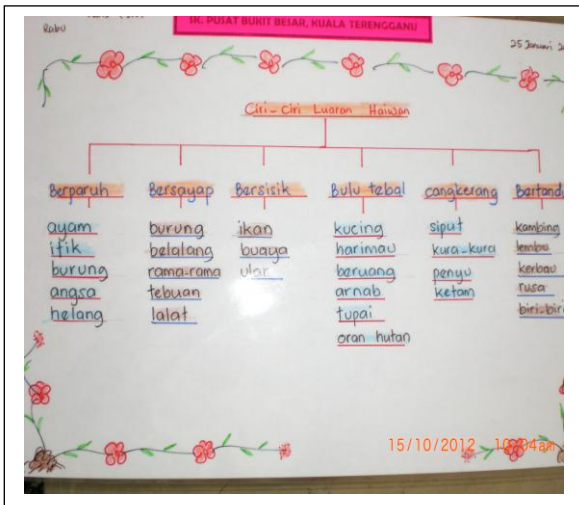 SK. PUSAT BUKIT BESAR, KUALA TERENGGANU
Rabu
25 Januari
Ciri-Ciri Luaran Haiwan
Berparuh
ayam
itik
burung
angsa
helang
Bersayap
burung
belalang
rama-rama
tebuan
lalat
Bersisik
ikan
buaya
ular
Bulu tebal
kucing
harimau
beruang
arnab
tupai
oran hutan
cangkerang
siput
kura-kura
penyu
ketam
Bertand
kambing
lembu
kerbau
rusa
biri-biri
15/10/2012 10:04am